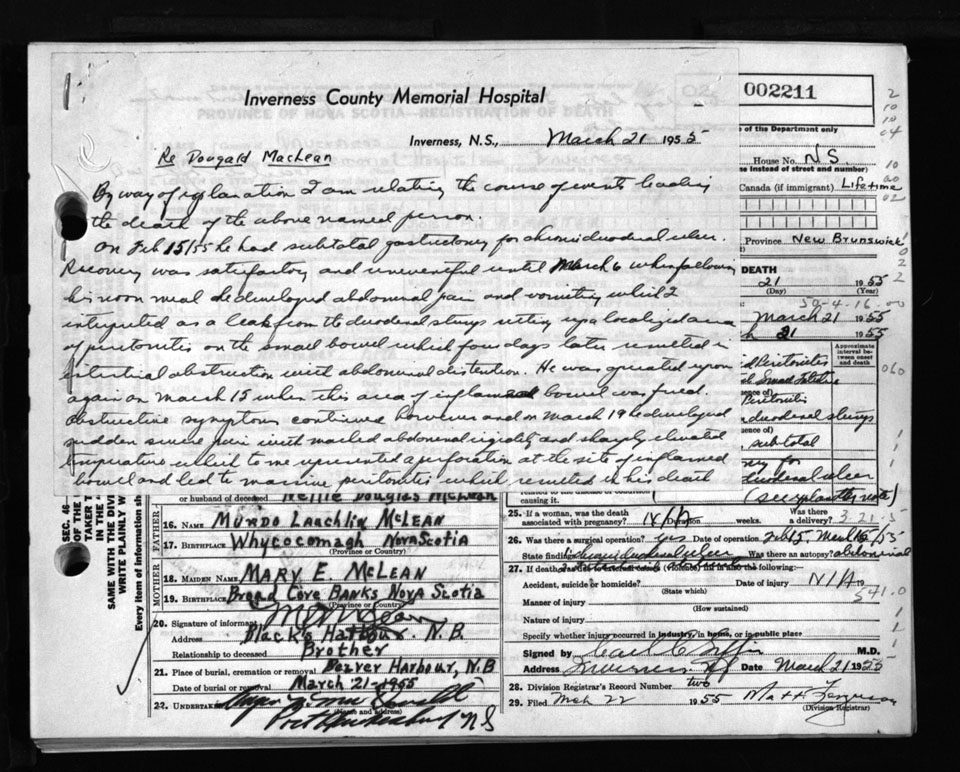 Inverness County Memorial Hospital
Inverness, N.S., March 21 1955
Re Dougald MacLean
By way of explanation I am relating the course of events leading
the death of the above named person.
On Feb 15/55 he had subtotal gastrectomy for chronic duodenal ulcer.
Recovery was satisfactory and uneventful until March 6 when following
his noon meal he developed abdominal pain and vomiting which I
interpreted as a leak from the duodenal stump setting up a localized area
of peritonitis on the small bowel which four days later resulted in
intestinal obstruction with abdominal distention. He was operated upon
again on March 15 when this area of inflamed bowel was freed.
Obstructive symptoms continued however and on March 19 he developed
sudden severe pain with marked abdominal rigidity and sharply elevated
temperature which to me represented a perforation at the site of inflamed
bowel and led to massive peritonitis which resulted in his death
002211
of the Department only
House No. N.S.
me instead of street and number)
Canada (if immigrant) Lifetime
Province New Brunswick
DEATH
21 1955
(Day) (Year)
March 21 1955
h 21 1955
Approximate interval between onset and death
Peritonitis
duodenal stump
subtotal
duodenal ulcer
(see explanatory note)
related to the disease or condition causing it.
SEC. 46
WRITE PLAINLY
SAME WITH THE DIVI
Every item of information
or husband of deceased Nellie Douglas McLean
FATHER
16. NAME Mundo Laachlin McLean
17. BIRTHPLACE Whycocomagh Nova Scotia
(Province or Country)
MOTHER
18. MAIDEN NAME Mary E. McLean
19. BIRTHPLACE Broad Cove Banks Nova Scotia
(Province or Country)
20. Signature of informant
Address Black's Harbour. N.B.
Relationship to deceased Brother
21. Place of burial, cremation or removal Beaver Harbour, N.B
Date of burial or removal March 21-1955
22. Undertaker
(Name and address)
Port Hawkesbury N S
25. If a woman, was the death associated with pregnancy? N/A Duration weeks. Was there a delivery?
26. Was there a surgical operation? Yes Date of operation Feb 15, March 15/55
State findings chronic duodenal ulcer Was there an autopsy? abdominal
27. If death was due to external causes (violence) fill in also the following:
Accident, suicide or homicide? Date of injury N/A 19
(State which)
541.0
Manner of injury
(How sustained)
Nature of injury
Specify whether injury occurred in industry, in home, or in public place
Signed by M.D.
Address Inverness NS Date March 21 1955
28. Division Registrar's Record Number two
29. Filed Mch 22 1955 Matt Ferguson
(Division Registrar)